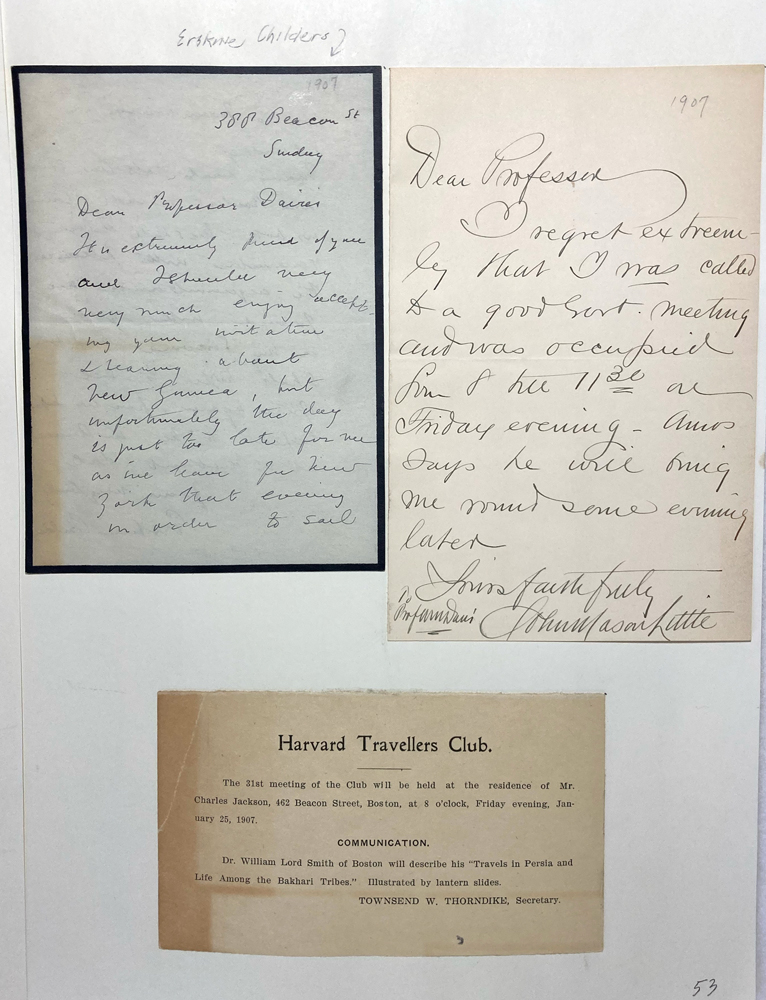 Erskine Childers
1907
388 Beacon St
Sunday
Dear Professor Davis
It is extremely kind of you
and I should very
very much enjoy accept-
ing your invitation
& hearing about
New Guinea, but
unfortunately the day
is just too late for me
as we leave for New
York that evening
in order to sail
1907
Dear Professor
I regret extreem-
ly that I was called
to a good Govt. meeting
and was occupied
from 8 till 11 30 on
Friday evening - Amos
says he will bring
me round some evening
later
Yours faithfully
John Mason Little
To
Prof Wm Davis
Harvard Travellers Club.
The 31st meeting of the Club will be held at the residence of Mr.
Charles Jackson, 462 Beacon Street, Boston, at 8 o'clock, Friday evening, Jan-
uary 25, 1907.
COMMUNICATION.
Dr. William Lord Smith of Boston will describe his "Travels in Persia and
Life Among the Bakhari Tribes." Illustrated by lantern slides.
TOWNSEND W. THORNDIKE, Secretary.
53